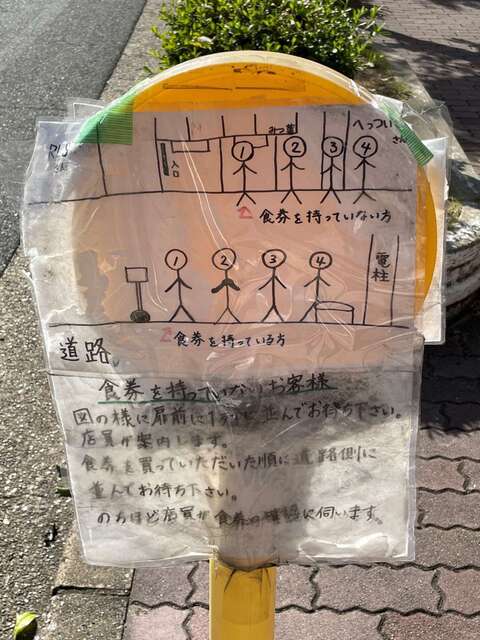 みつ葉
へっつい
さん
入口
① ② ③ ④
食券を持っていない方
① ② ③ ④
電柱
食券を持っている方
道路
食券を持っていないお客様
図の様に扉前に1列に並んでお待ち下さい。
店員が案内します。
食券を買っていただいた順に道路側に
並んでお待ち下さい。
のちほど店員が食券の確認に伺います。